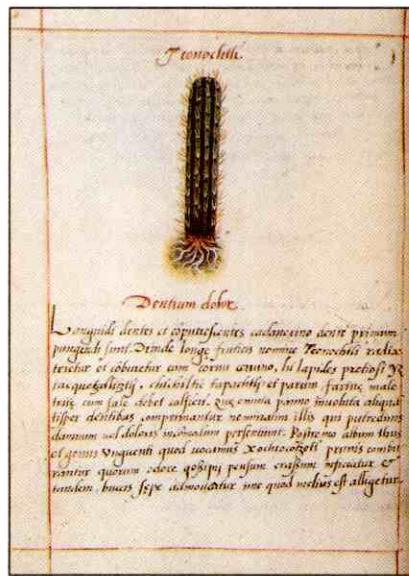 Teonochtli.
Dentium dolor.
Languidi dentes et cadaverino dente primum
pungendi sunt. Deinde longe fruticis nomine Teonochtli radix
teritur et coburitur cum cornu cervino, hi lapides pretiosi
chichiltic tapachtli et parum farinę male
tritę cum sale debet calfieri. Quę omnia panno involuta aliquan
tisper dentibus comprimantur nominatim illis qui putredinis
damnum vel doloris persentiunt. Postremo album thus
et genus Unguenti quod vocamus Xochiocotzotl prunis combu
rantur quorum odore gosipii pensum crassum inficiatur &
tandem buccis sępe admoveatur, quod melius est alligetur.